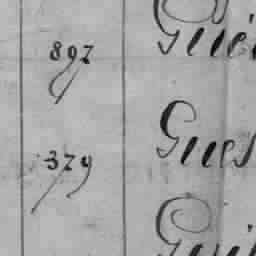 897 Gué
379 Gues
Gui